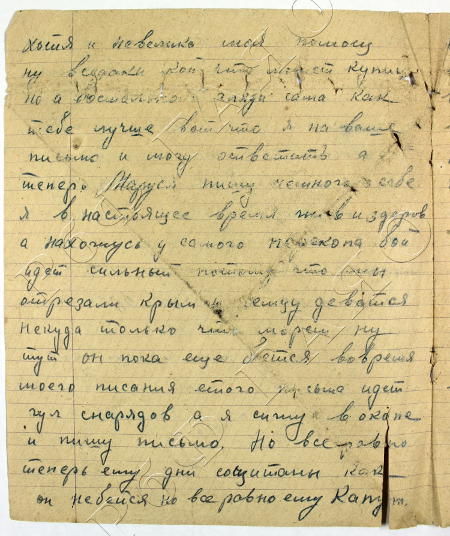 хотя и невелика моя помощ
ну всетаки кой что может купиш
но а остальное гляди сама как
тебе лучше вот что я на ваше
письмо и могу ответить а
теперь Маруся пишу немного о себе
я в настоящее время жив и здоров
а нахожусь у самого перекопа бой
идет сильный потому что мы
отрезали крым и ему деватся
некуда только что морем ну
тут он пока еще бьется вовремя
моего писания етого письма идет
гул снарядов а я сижу в окопе
и пишу письмо. Но все ровно
теперь ему дни сощитаны как
он небейся но все ровно ему Капут.